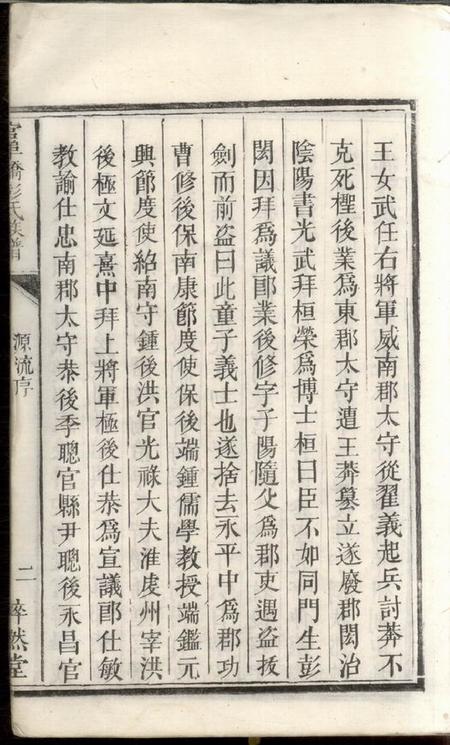 王女武任右將軍威南郡太守從翟義起兵討莽不
克死桱後業為東郡太守遭王莽墓立遂廢郡閎治
陰陽書光武拜桓榮爲博士桓曰臣不如同門生彭
閎因拜爲議郎業後修字子陽隨父爲郡吏遇盗拔
劍而前盗曰此童子義士也遂捨去永平中爲郡功
曹修後保南康節度使保後端鍾儒學教授端鑑元
興節度使紹南守鍾後洪官光祿大夫淮虔州宰洪
後極文延熹中拜上將軍極後仕恭爲宣議郎仕敏
教諭仕忠南郡太守恭後季聰官縣尹聰後永昌官
官埠橋彭氏族譜
源流序
二
睟然堂